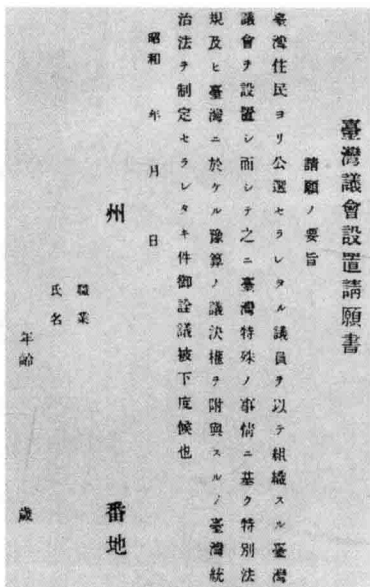 臺灣議會設置請願書
請願ノ要旨
臺灣住民ヨリ公選セラレタル議員ヲ以テ組織スル臺灣
議會ヲ設置シ而シテ之ニ臺灣特殊ノ事情ニ基ク特別法
規及ヒ臺灣ニ於ケル豫算ノ議決權ヲ附與スルノ臺灣統
治法ヲ制定セラレタキ件御詮議被下度候也
昭和 年 月 日
州 番地
職業
氏名
年齡 歲